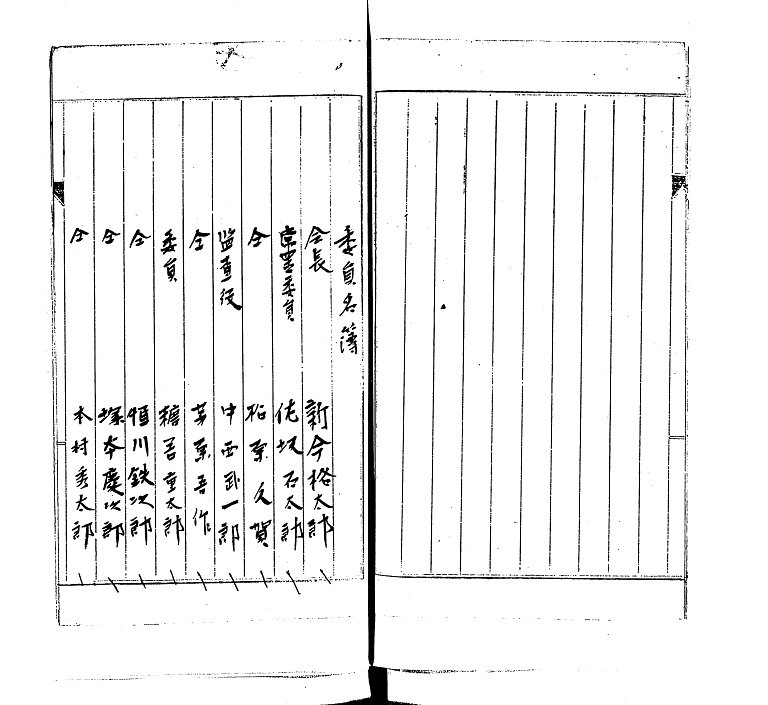 委員名簿
会長 新今格太郎
常置委員 佐坂石太郎
仝 松原久賀
監査役 中西武一郎
仝 原吾作
委員 吾重太郎
仝 恒川鉄次郎
仝 塚本慶次郎
仝 木村秀太郎